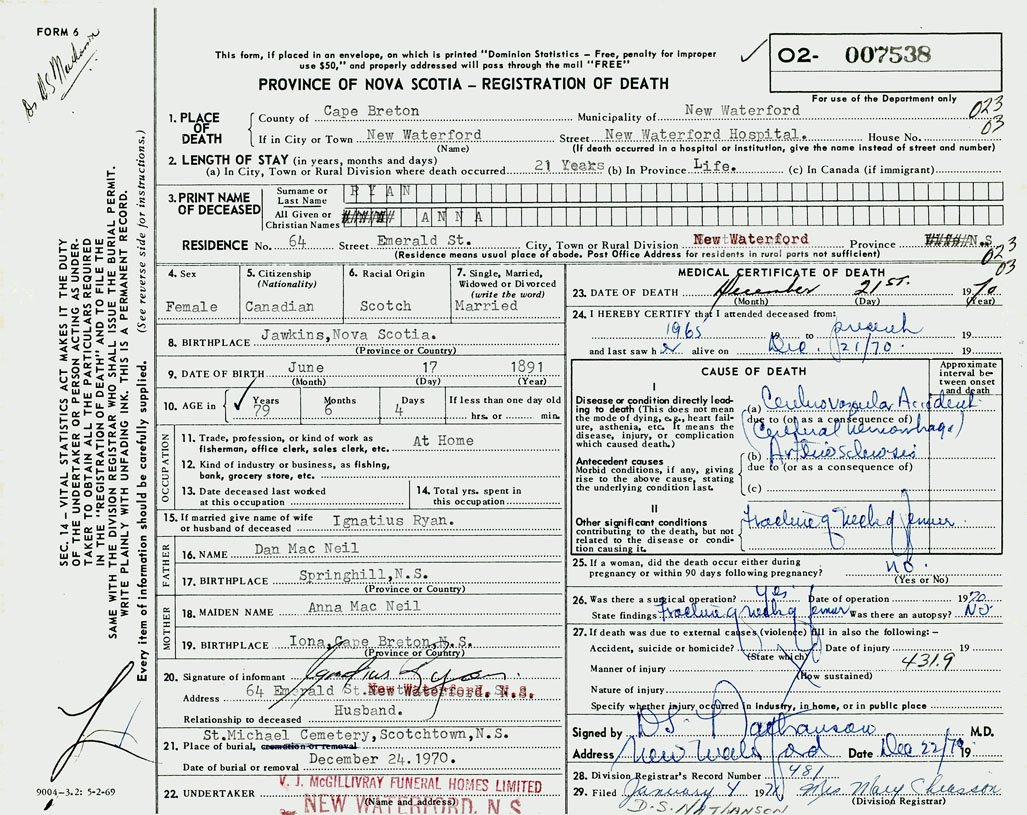 FORM 6
Dr. D.S. Nathanson
This form, if placed in an envelope, on which is printed "Dominion Statistics – Free, penalty for improper
use $50," and properly addressed will pass through the mail "FREE"
PROVINCE OF NOVA SCOTIA – REGISTRATION OF DEATH
02- 007538
For use of the Department only
023
03
1. PLACE OF DEATH
County of Cape Breton Municipality of New Waterford
If in City or Town New Waterford Street New Waterford Hospital. House No.
(Name) (If death occurred in a hospital or institution, give the name instead of street and number)
2. LENGTH OF STAY (in years, months and days)
(a) In City, Town or Rural Division where death occurred 21 Years (b) In Province Life. (c) In Canada (if immigrant)
3. PRINT NAME OF DECEASED
Surname or Last Name RYAN
All Given or Christian Names ANNA
RESIDENCE No. 64 Street Emerald St. City, Town or Rural Division New Waterford Province N.S.
(Residence means usual place of abode. Post Office Address for residents in rural parts not sufficient)
023
03
4. Sex
Female
5. Citizenship
(Nationality)
Canadian
6. Racial Origin
Scotch
7. Single, Married,
Widowed or Divorced
(write the word)
Married
8. BIRTHPLACE Jawkins,Nova Scotia.
(Province or Country)
9. DATE OF BIRTH June 17 1891
(Month) (Day) (Year)
10. AGE in Years Months Days If less than one day old
79 6 4 hrs. or min.
OCCUPATION
11. Trade, profession, or kind of work as At Home
fisherman, office clerk, sales clerk, etc.
12. Kind of industry or business, as fishing,
bank, grocery store, etc.
13. Date deceased last worked
at this occupation
14. Total yrs. spent in
this occupation
15. If married give name of wife
or husband of deceased Ignatius Ryan.
FATHER
16. NAME Dan Mac Neil
17. BIRTHPLACE Springhill,N.S.
(Province or Country)
MOTHER
18. MAIDEN NAME Anna Mac Neil
19. BIRTHPLACE Iona,Cape Breton,N.S.
(Province or Country)
20. Signature of informant Ignatius Ryan.
Address 64 Emerald St. New Waterford, N.S.
Relationship to deceased Husband.
St.Michael Cemetery,Scotchtown,N.S.
21. Place of burial, cremation or removal
Date of burial or removal December 24.1970.
22. UNDERTAKER V. J. McGILLIVRAY FUNERAL HOMES LIMITED
(Name and address)
NEW WATERFORD, N.S.
MEDICAL CERTIFICATE OF DEATH
23. DATE OF DEATH December 21st. 1970
(Month) (Day) (Year)
24. I HEREBY CERTIFY that I attended deceased from:
1965 19 to present 19
and last saw her alive on Dec. 21/70. 19
CAUSE OF DEATH
Approximate
interval be-
tween onset
and death
I
Disease or condition directly lead-
ing to death (This does not mean
the mode of dying, e.g., heart fail-
ure, asthenia, etc. It means the
disease, injury, or complication
which caused death.)
(a) Cerebrovascular Accident
due to (or as a consequence of)
(Cerebral hemorrhage)
Antecedent causes
Morbid conditions, if any, giving
rise to the above cause, stating
the underlying condition last.
(b) Arteriosclerosis
due to (or as a consequence of)
(c)
II
Other significant conditions
contributing to the death, but not
related to the disease or condi-
tion causing it.
Fracture of neck of femur
25. If a woman, did the death occur either during
pregnancy or within 90 days following pregnancy? no.
(Yes or No)
26. Was there a surgical operation? yes Date of operation 1970
State findings Fracture of neck of femur Was there an autopsy? No
27. If death was due to external causes (violence) fill in also the following: –
Accident, suicide or homicide? Date of injury 19
(State which)
4319
Manner of injury
(How sustained)
Nature of injury
Specify whether injury occurred in industry, in home, or in public place
Signed by D.S. Nathanson M.D.
Address New Waterford Date Dec 22/70 19
28. Division Registrar's Record Number 481
29. Filed January 4 1971 Mrs. Mary Chiasson
(Division Registrar)
D.S. NATHANSON
SEC. 14 – VITAL STATISTICS ACT MAKES IT THE DUTY
OF THE UNDERTAKER OR PERSON ACTING AS UNDER-
TAKER TO OBTAIN ALL THE PARTICULARS REQUIRED
IN THE "REGISTRATION OF DEATH" AND TO FILE THE
SAME WITH THE DIVISION REGISTRAR WHO SHALL ISSUE THE BURIAL PERMIT.
WRITE PLAINLY WITH UNFADING INK. THIS IS A PERMANENT RECORD.
Every item of information should be carefully supplied. (See reverse side for instructions.)
9004–3.2: 5-2-69